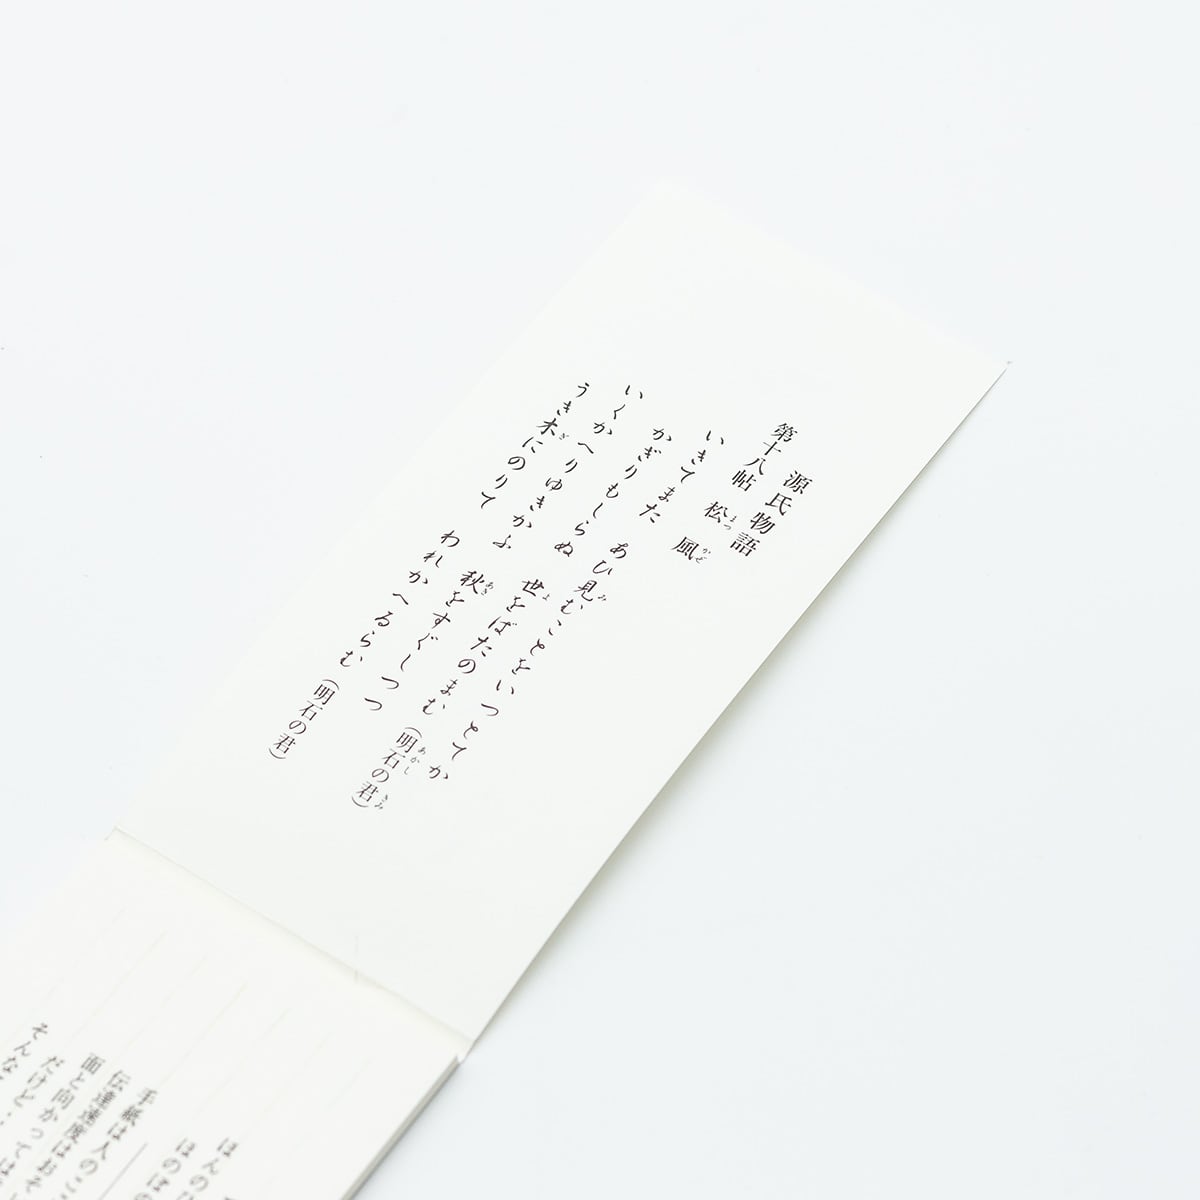 源氏物語
第十八帖 松風
いきてまた あひ見むことをいつとてか
かぎりもしらぬ 世をばたのまむ（明石の君）
いくかへりゆきかふ 秋をすぐしつつ
うき木にのりて われかへるらむ（明石の君）
ほんのひ
ほのぼの
手紙は人のここ
伝達速度はおそ
面と向かっては
だけど
そんな